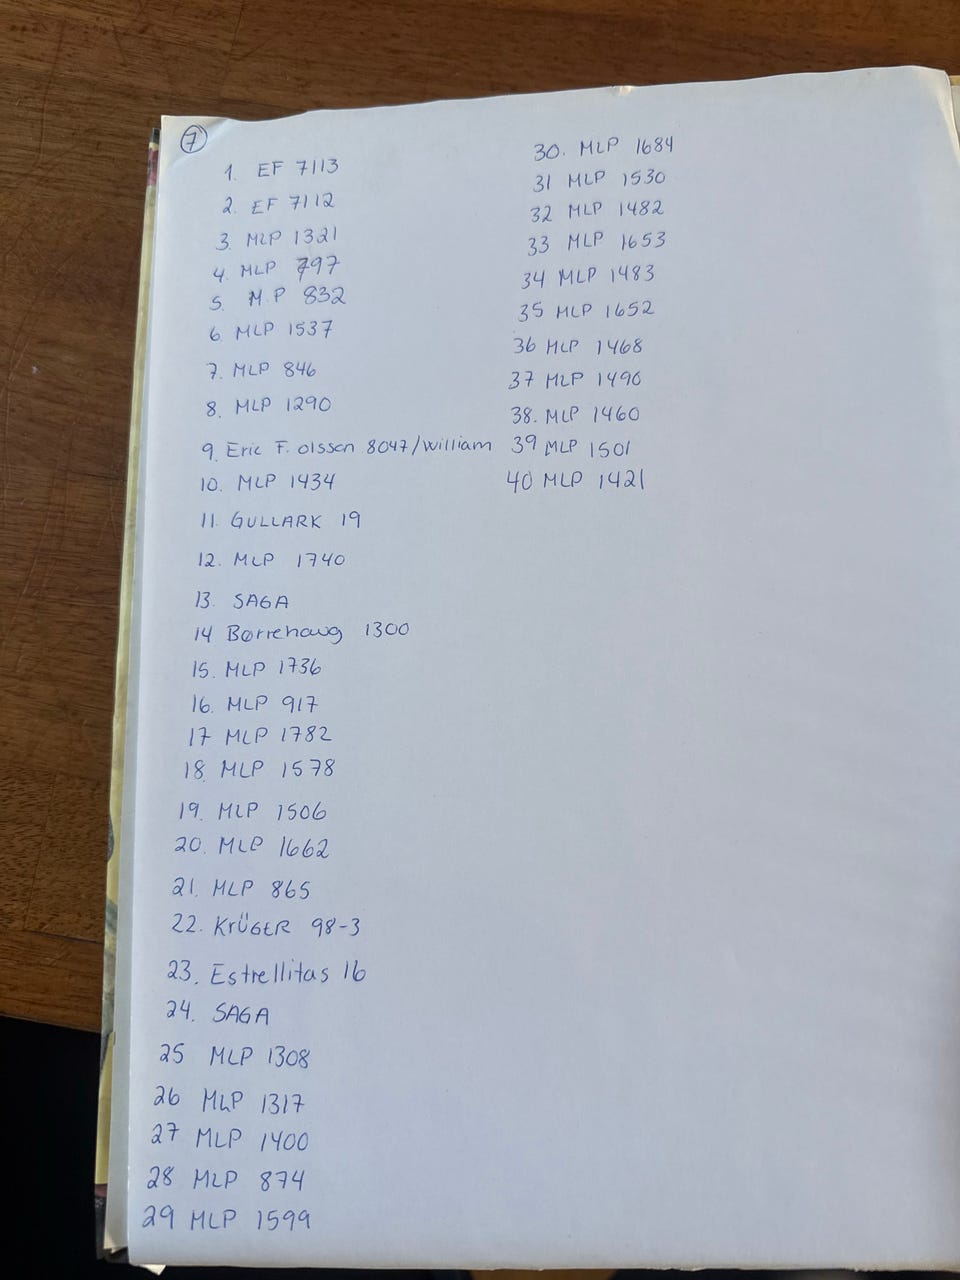 7
1. EF 7113
2. EF 7112
3. MLP 1321
4. MLP 797
5. M.P 832
6. MLP 1537
7. MLP 846
8. MLP 1290
9. Eric F. olsson 8047/william
10. MLP 1434
11. GULLARK 19
12. MLP 1740
13. SAGA
14 Børrehaug 1300
15. MLP 1736
16. MLP 917
17 MLP 1782
18. MLP 1578
19. MLP 1506
20. MLP 1662
21. MLP 865
22. KRÜGER 98-3
23. Estrellitas 16
24. SAGA
25 MLP 1308
26 MLP 1317
27 MLP 1400
28 MLP 874
29 MLP 1599
30. MLP 1684
31 MLP 1530
32 MLP 1482
33 MLP 1653
34 MLP 1483
35 MLP 1652
36 MLP 1468
37 MLP 1490
38. MLP 1460
39 MLP 1501
40 MLP 1421